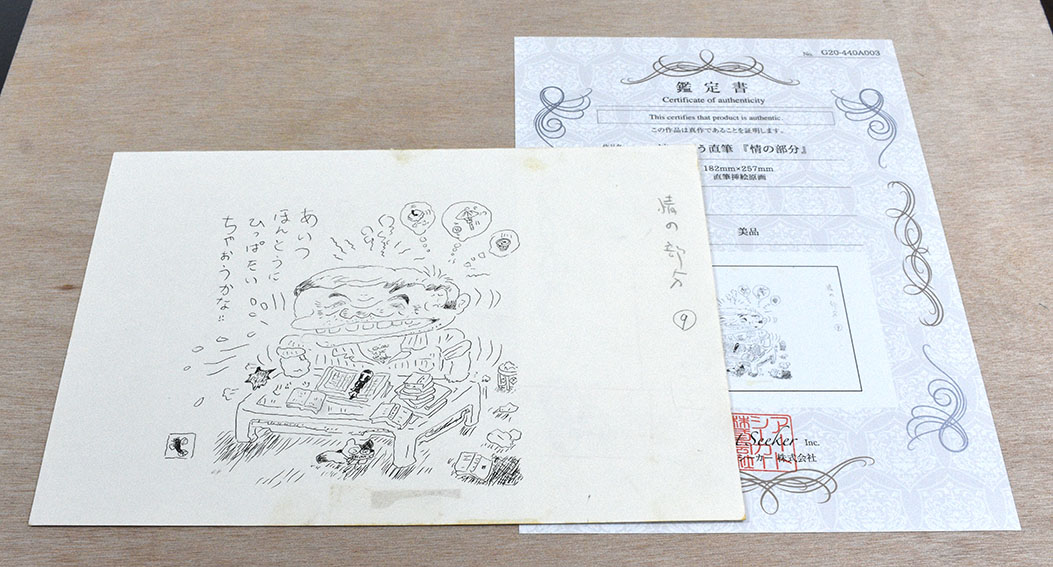 あいつ
ほんとうに
ひっぱたい
ちゃおうかな…
情の部分
⑨
No. G20-440A003
鑑定書
Certificate of authenticity
This certifies that product is authentic.
この作品は真作であることを証明します。
う直筆 『情の部分』
182mm×257mm
直筆挿絵原画
美品
Seeker Inc.
ーカー 株式会社